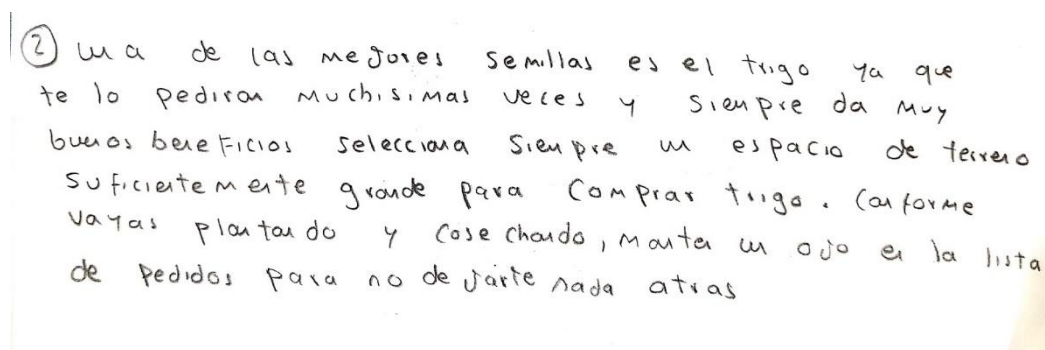 ② una de las mejores semillas es el trigo ya que
te lo pediran muchisimas veces y siempre da muy
buenos beneficios selecciona siempre un espacio de terreno
suficientemente grande para comprar trigo. Conforme
vayas plantando y cosechando, manten un ojo en la lista
de pedidos para no dejarte nada atras